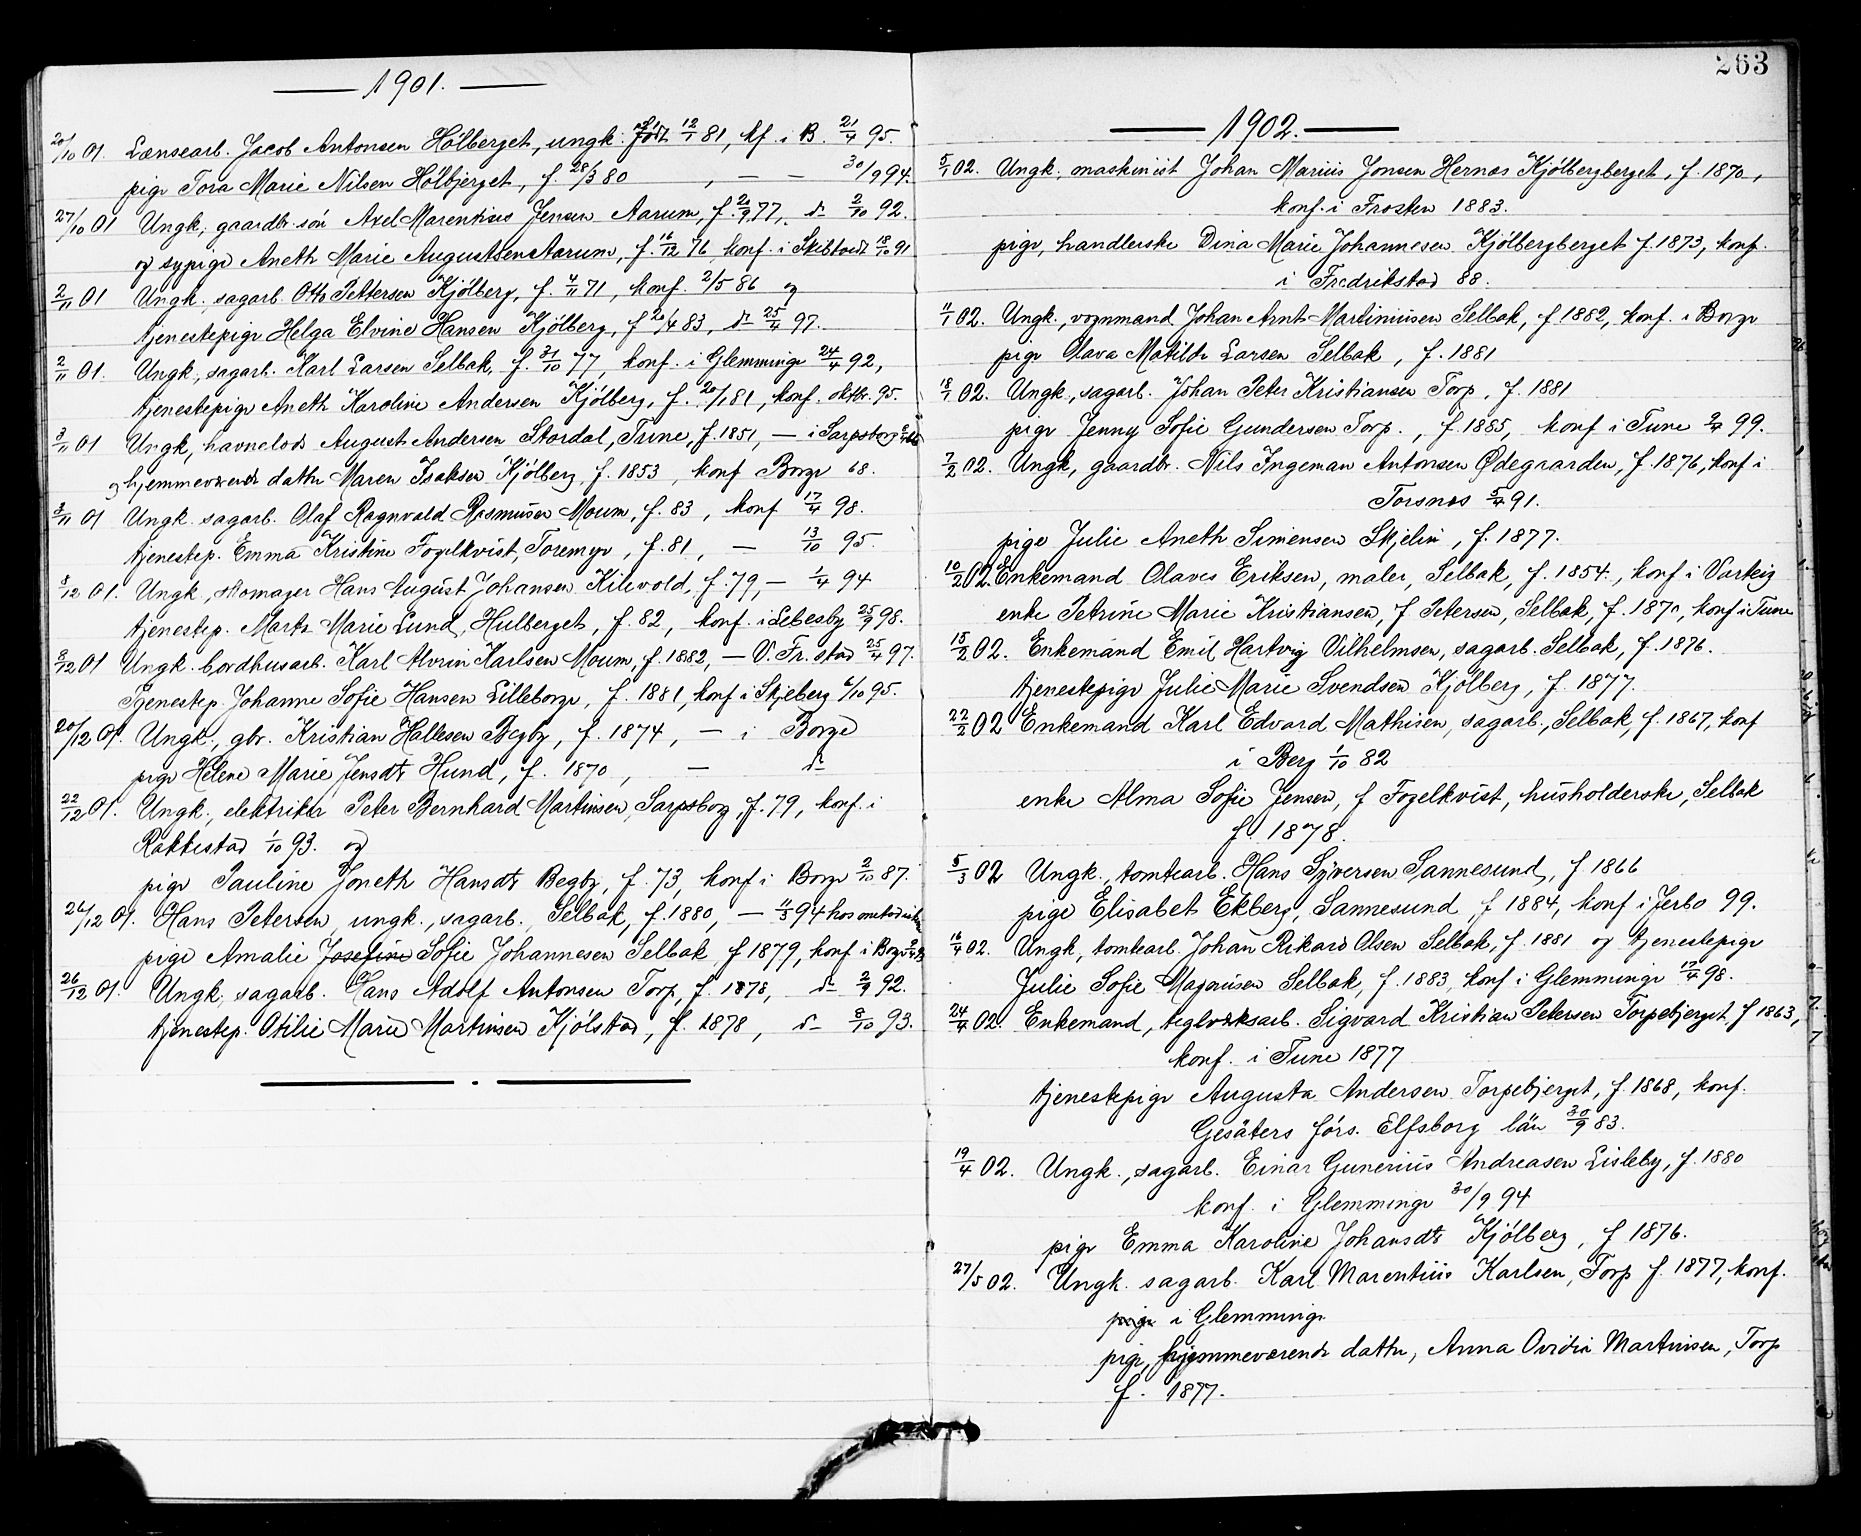 1901.
20/10 01. Lænsearb. Jacob Antonsen Hölberget, ungk. födt 12/1 81, kf. i B. 21/4 95.
pige Tora Marie Nilsen Hölbjerget, f. 28/3 80, — — 30/9 94.
27/10 01 Ungk., gaardbr. sön Axel Marentius Jensen Aarum, f. 20/9 77, do 2/10 92.
og sypige Aneth Marie Augustsen Aarum, f. 16/12 76 konf. i Skibtvedt 18/10 91
2/11 01 Ungk. sagarb. Otto Pettersen Kjölberg, f. 4/11 71, konf. 2/5 86 og
tjenestepige Helga Elvine Hansen Kjölberg, f 20/4 83, do 25/4 97.
2/11 01. Ungk., sagarb. Karl Larsen Selbak, f. 31/10 77, konf. i Glemminge 24/4 92,
tjenestepige Aneth Karoline Andersen Kjölberg, f. 20/1 81, konf. oktbr. 95.
3/11 01 Ungk, havnelods August Andersen Stordal, Trine, f. 1851, — i Sarpsborg
og hjemmeværende datter Maren Isaksen Kjölberg, f. 1853, konf Borge 68.
3/11 01 Ungk. sagarb. Olaf Ragnvald Rasmusen Moum, f. 83, konf 17/4 98.
tjenestep. Emma Kristine Fogelkvist, Toremyr, f. 81, — 13/10 95.
8/12 01. Ungk., skomager Hans August Johansen Kilevold, f. 79, — 1/4 94
tjenestep. Marte Marie Lund, Hulberget, f. 82, konf. i Lebesby 25/9 98.
8/12 01 Ungk. bordhusarb. Karl Alvrin Karlsen Moum, f. 1882, — V. Fr.stad 25/4 97.
Tjenestep. Johanne Sofie Hansen Lilleborge, f. 1881, konf i Skjeberg 6/10 95.
20/12 01. Ungk., gbr. Kristian Hellesen Begby, f. 1874, — i Borge
pige Helene Marie Jensdtr Hund, f. 1870, — do
22/12 01. Ungk., elektriker Peter Bernhard Martinsen, Sarpsborg, f. 79, konf. i
Rakkestad 1/10 93. og
pige Pauline Joneth Hansdtr Begby, f. 73, konf i Borge 2/10 87.
26/12 01. Hans Petersen, ungk., sagarb. Selbak, f. 1880, — 11/3 94 hos metodisterne
pige Amalie Josefine Sofie Johannesen Selbak, f 1879, konf i Borge
26/12 01. Ungk, sagarb. Hans Adolf Antonsen Torp, f. 1878, do 2/9 92.
tjenestep. Otilie Marie Martinsen Kjölstad, f. 1878, do 8/10 93.
263
1902.
5/1 02. Ungk, maskinist Johan Marius Jonsen Hernæs Kjölbergberget, f. 1870,
konf. i Frosten 1883.
pige, handlerske Dina Marie Johannesen Kjölbergberget f. 1873, konf.
i Fredrikstad 88.
11/1 02. Ungk., vognmand Johan Arnt Martiniusen Selbak, f 1882, konf. i Borge
pige Olava Matilde Larsen Selbak, f. 1881
18/1 02. Ungk., sagarb. Johan Peter Kristiansen Torp, f. 1881
pige Jenny Sofie Gundersen Torp., f. 1885, konf i Tune 2/4 99.
7/2 02. Ungk, gaardbr. Nils Ingeman Antonsen Ødegaarden, f. 1876, konf i
Torsnes 5/4 91.
pige Julie Aneth Simensen Skjelin, f. 1877.
10/2 02. Enkemand Olaves Eriksen, maler, Selbak, f. 1854., konf i Varteig
enke Petrine Marie Kristiansen, f Petersen, Selbak, f. 1870, konf i Tune
15/2 02. Enkemand Emil Hartvig Vilhelmsen, sagarb. Selbak, f. 1876.
tjenestepige Julie Marie Svendsen Kjölberg, f. 1877.
22/2 02 Enkemand Karl Edvard Mathisen, sagarb., Selbak, f. 1867, konf
i Berg 1/10 82
enke Alma Sofie Jensen, f Fogelkvist, husholderske, Selbak
f. 1878.
5/3 02 Ungk., tomtearb. Hans Syversen Sannesund, f. 1866
pige Elisabet Ekberg, Sannesund f 1884, konf i Jerbo 99.
16/4 02. Ungk, tomtearb. Johan Rikard Olsen Selbak, f. 1881 og tjenestepige
Julie Sofie Magnusen Selbak, f. 1883, konf. i Glemminge 17/4 98.
24/4 02. Enkemand, teglverksarb. Sigvard Kristian Petersen Torpebjerget, f 1863,
konf. i Tune 1877
tjenestepige Augusta Andersen Torpebjerget, f. 1868, konf.
Gesäters förs. Elfsborg län 30/9 83.
19/4 02. Ungk., sagarb. Einar Gunerius Andreasen Lisleby, f. 1880
konf. i Glemminge 30/9 94
pige Emma Karoline Johansdtr Kjölberg, f 1876.
27/5 02. Ungk. sagarb. Karl Marentius Karlsen, Torp f. 1877, konf.
pige i Glemminge
pige, hjemmeværende datter, Anna Ovidia Martinisen, Torp
f. 1877.